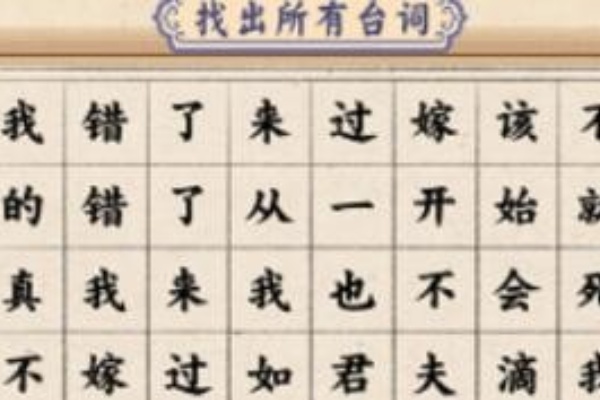 找出所有台词
我错了来过嫁该不
的错了从一开始就
真我来我也不会死
不嫁过如君夫滴我